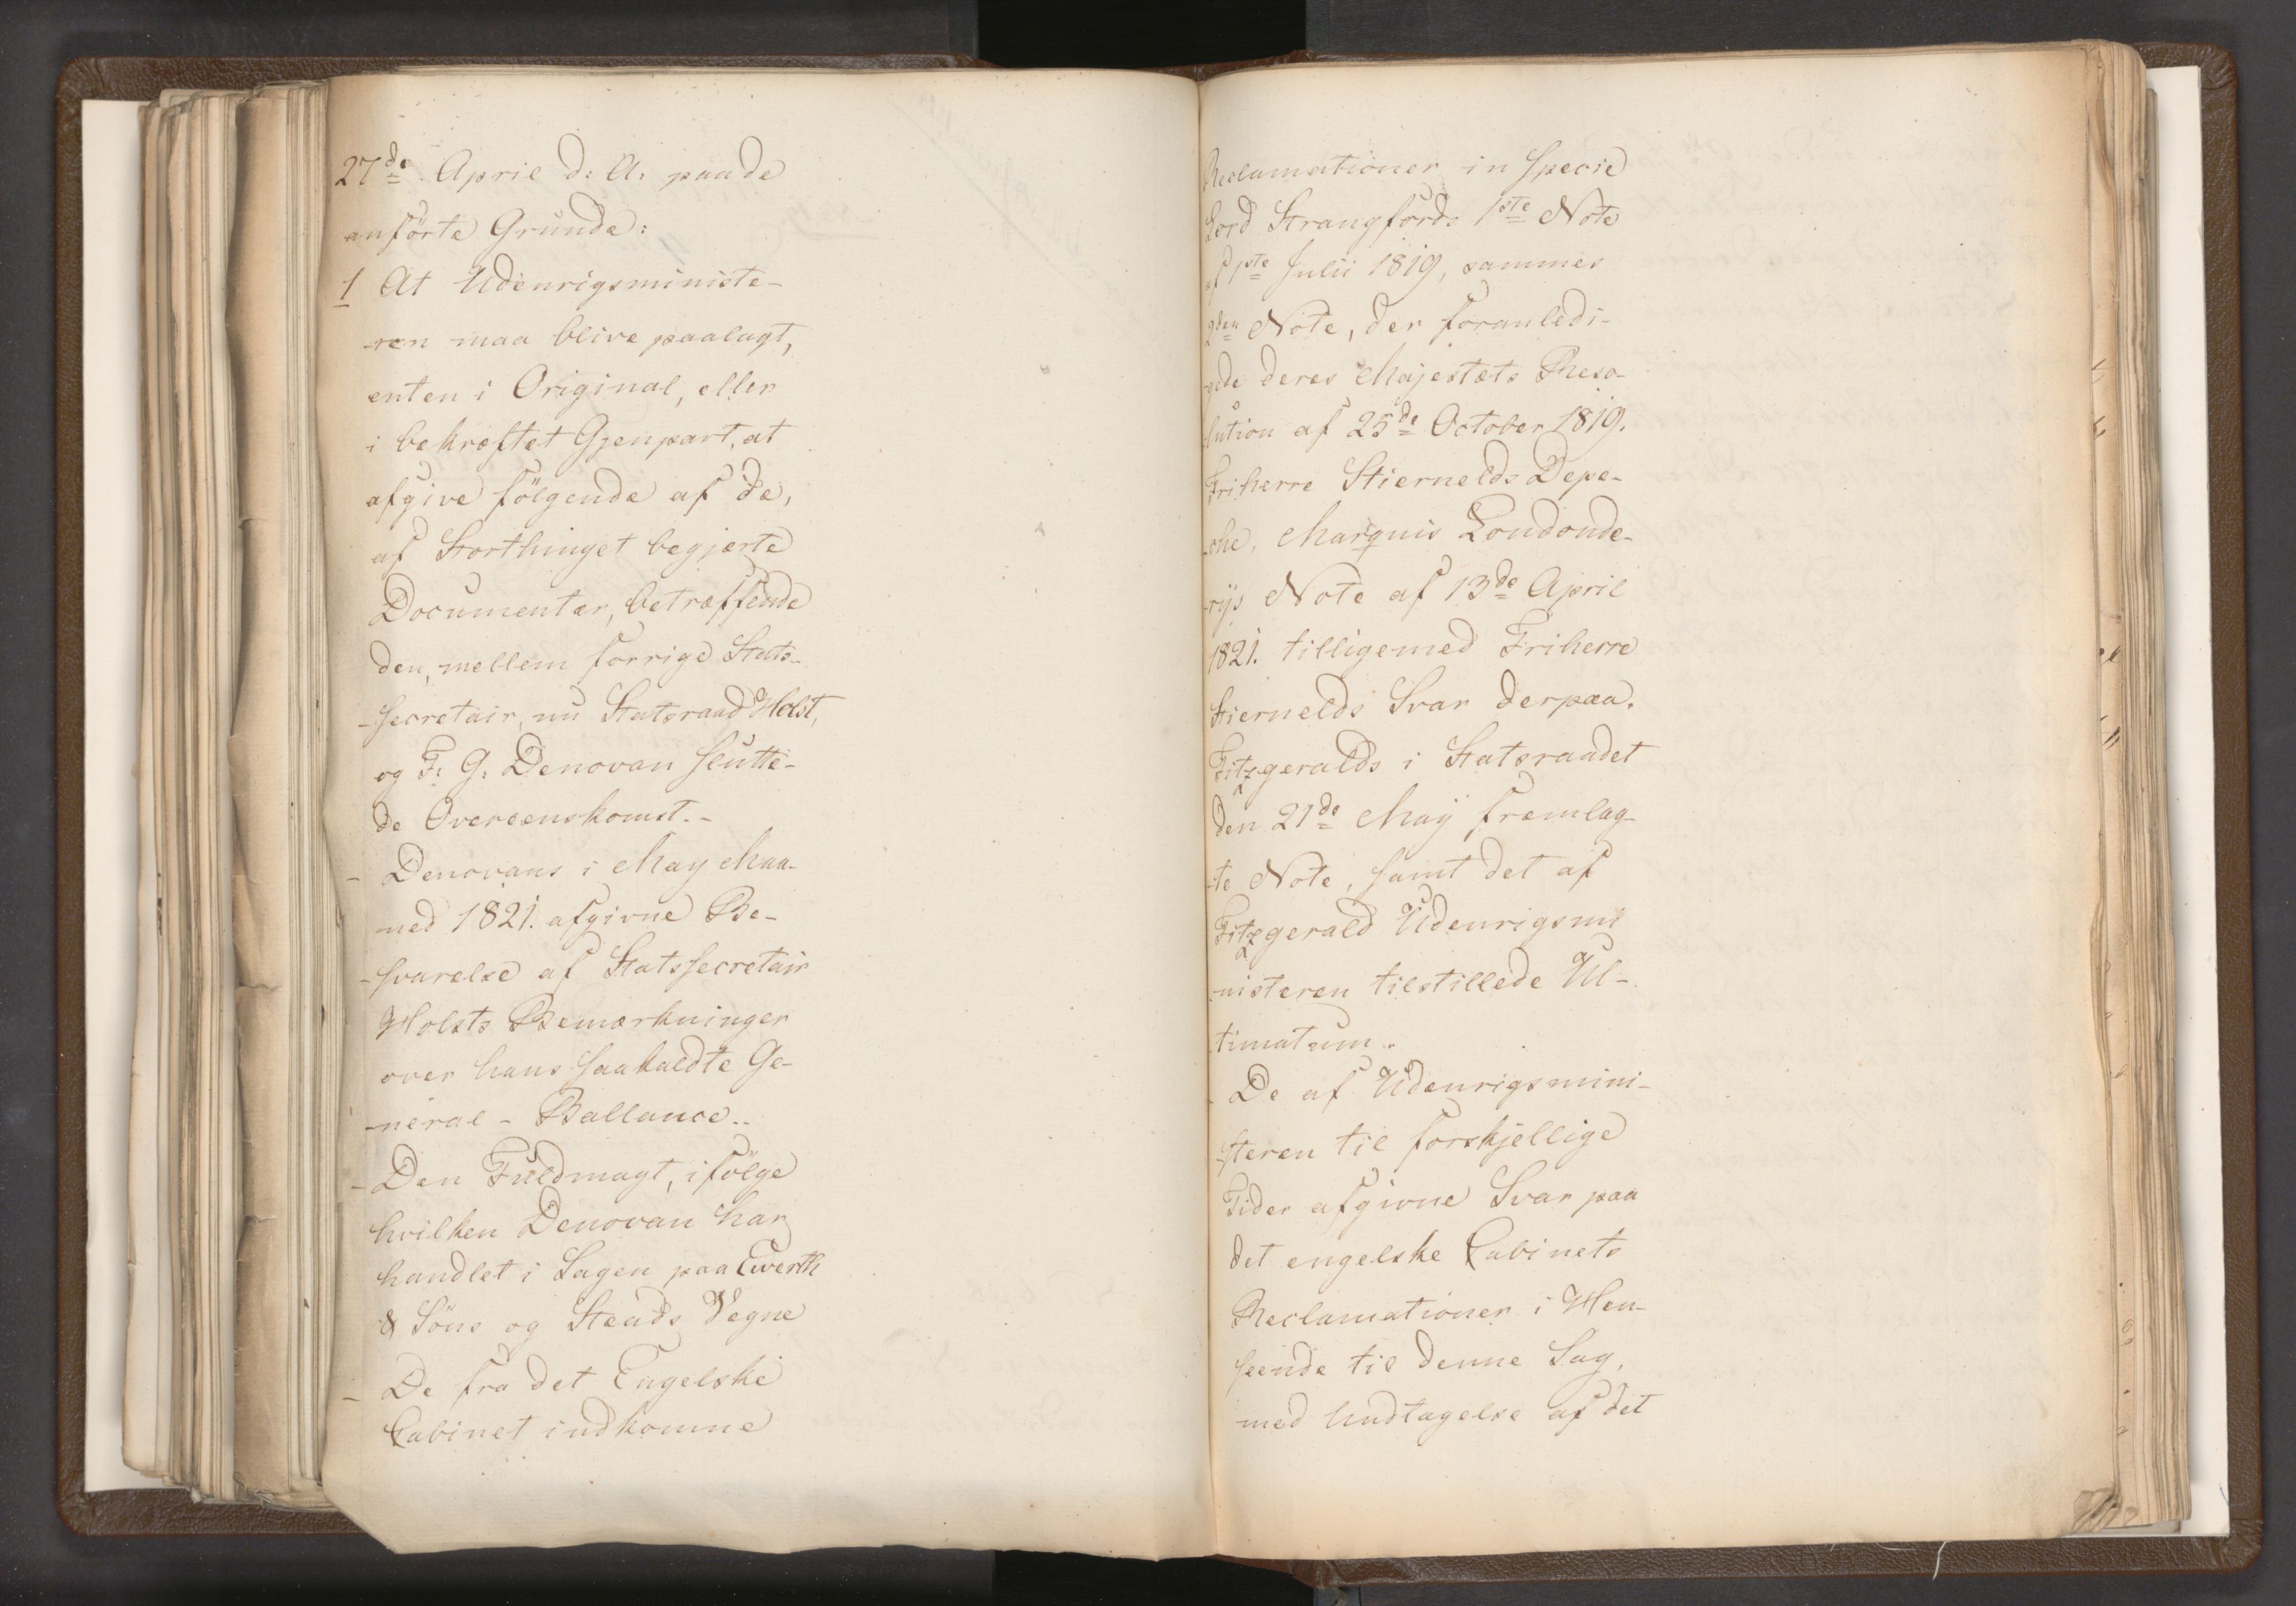 27de April d: A: paa de
anförte Grunde:
1 At Udenrigsministe-
-ren maa blive paalagt,
enten i Original, eller
i bekræftet Gjenpart, at
afgive fölgende af de,
af Storthinget begjærte
Documenter, betræffende
den, mellem forrige Stats-
-secretair, nu Statsraad Holst,
og F: G: Denovan slutte-
de Overeenskomst.-
- Denovans i May Maa-
ned 1821. afgivne Be-
-svarelse af Statssecretair
Holsts Bemærkninger
over hans saakaldte Ge-
-neral-Ballance..
- Den Fuldmagt, ifölge
hvilken Denovan har
handlet i Sagen paa Everth
& Söns og Steads Vegne
- De fra det Engelske
Cabinet indkomne
Reclamationer in specie
Lord Strangfords 1ste Note
af 1ste Julii 1819, sammes
2den Note, der foranledi-
-gede deres Majestæts Reso-
lution af 25de October 1819.
Friherre Stiernelds Depe-
-che, Marquis Londonde-
-rijs Note af 13de April
1821. tilligemed Friherre
Stiernelds Svar derpaa.
Fitzgeralds i Statsraadet
den 21de Maÿ fremlag-
-te Note, samt det af
Fitzgerald Udenrigsmi
-nisteren tilstillede Ul-
timatum.
- De af Udenrigsmini-
-steren til forskjellige
Tider afgivne Svar paa
det engelske Cabinets
Reclamationer i Hen-
seende til denne Sag,
med Undtagelse af det